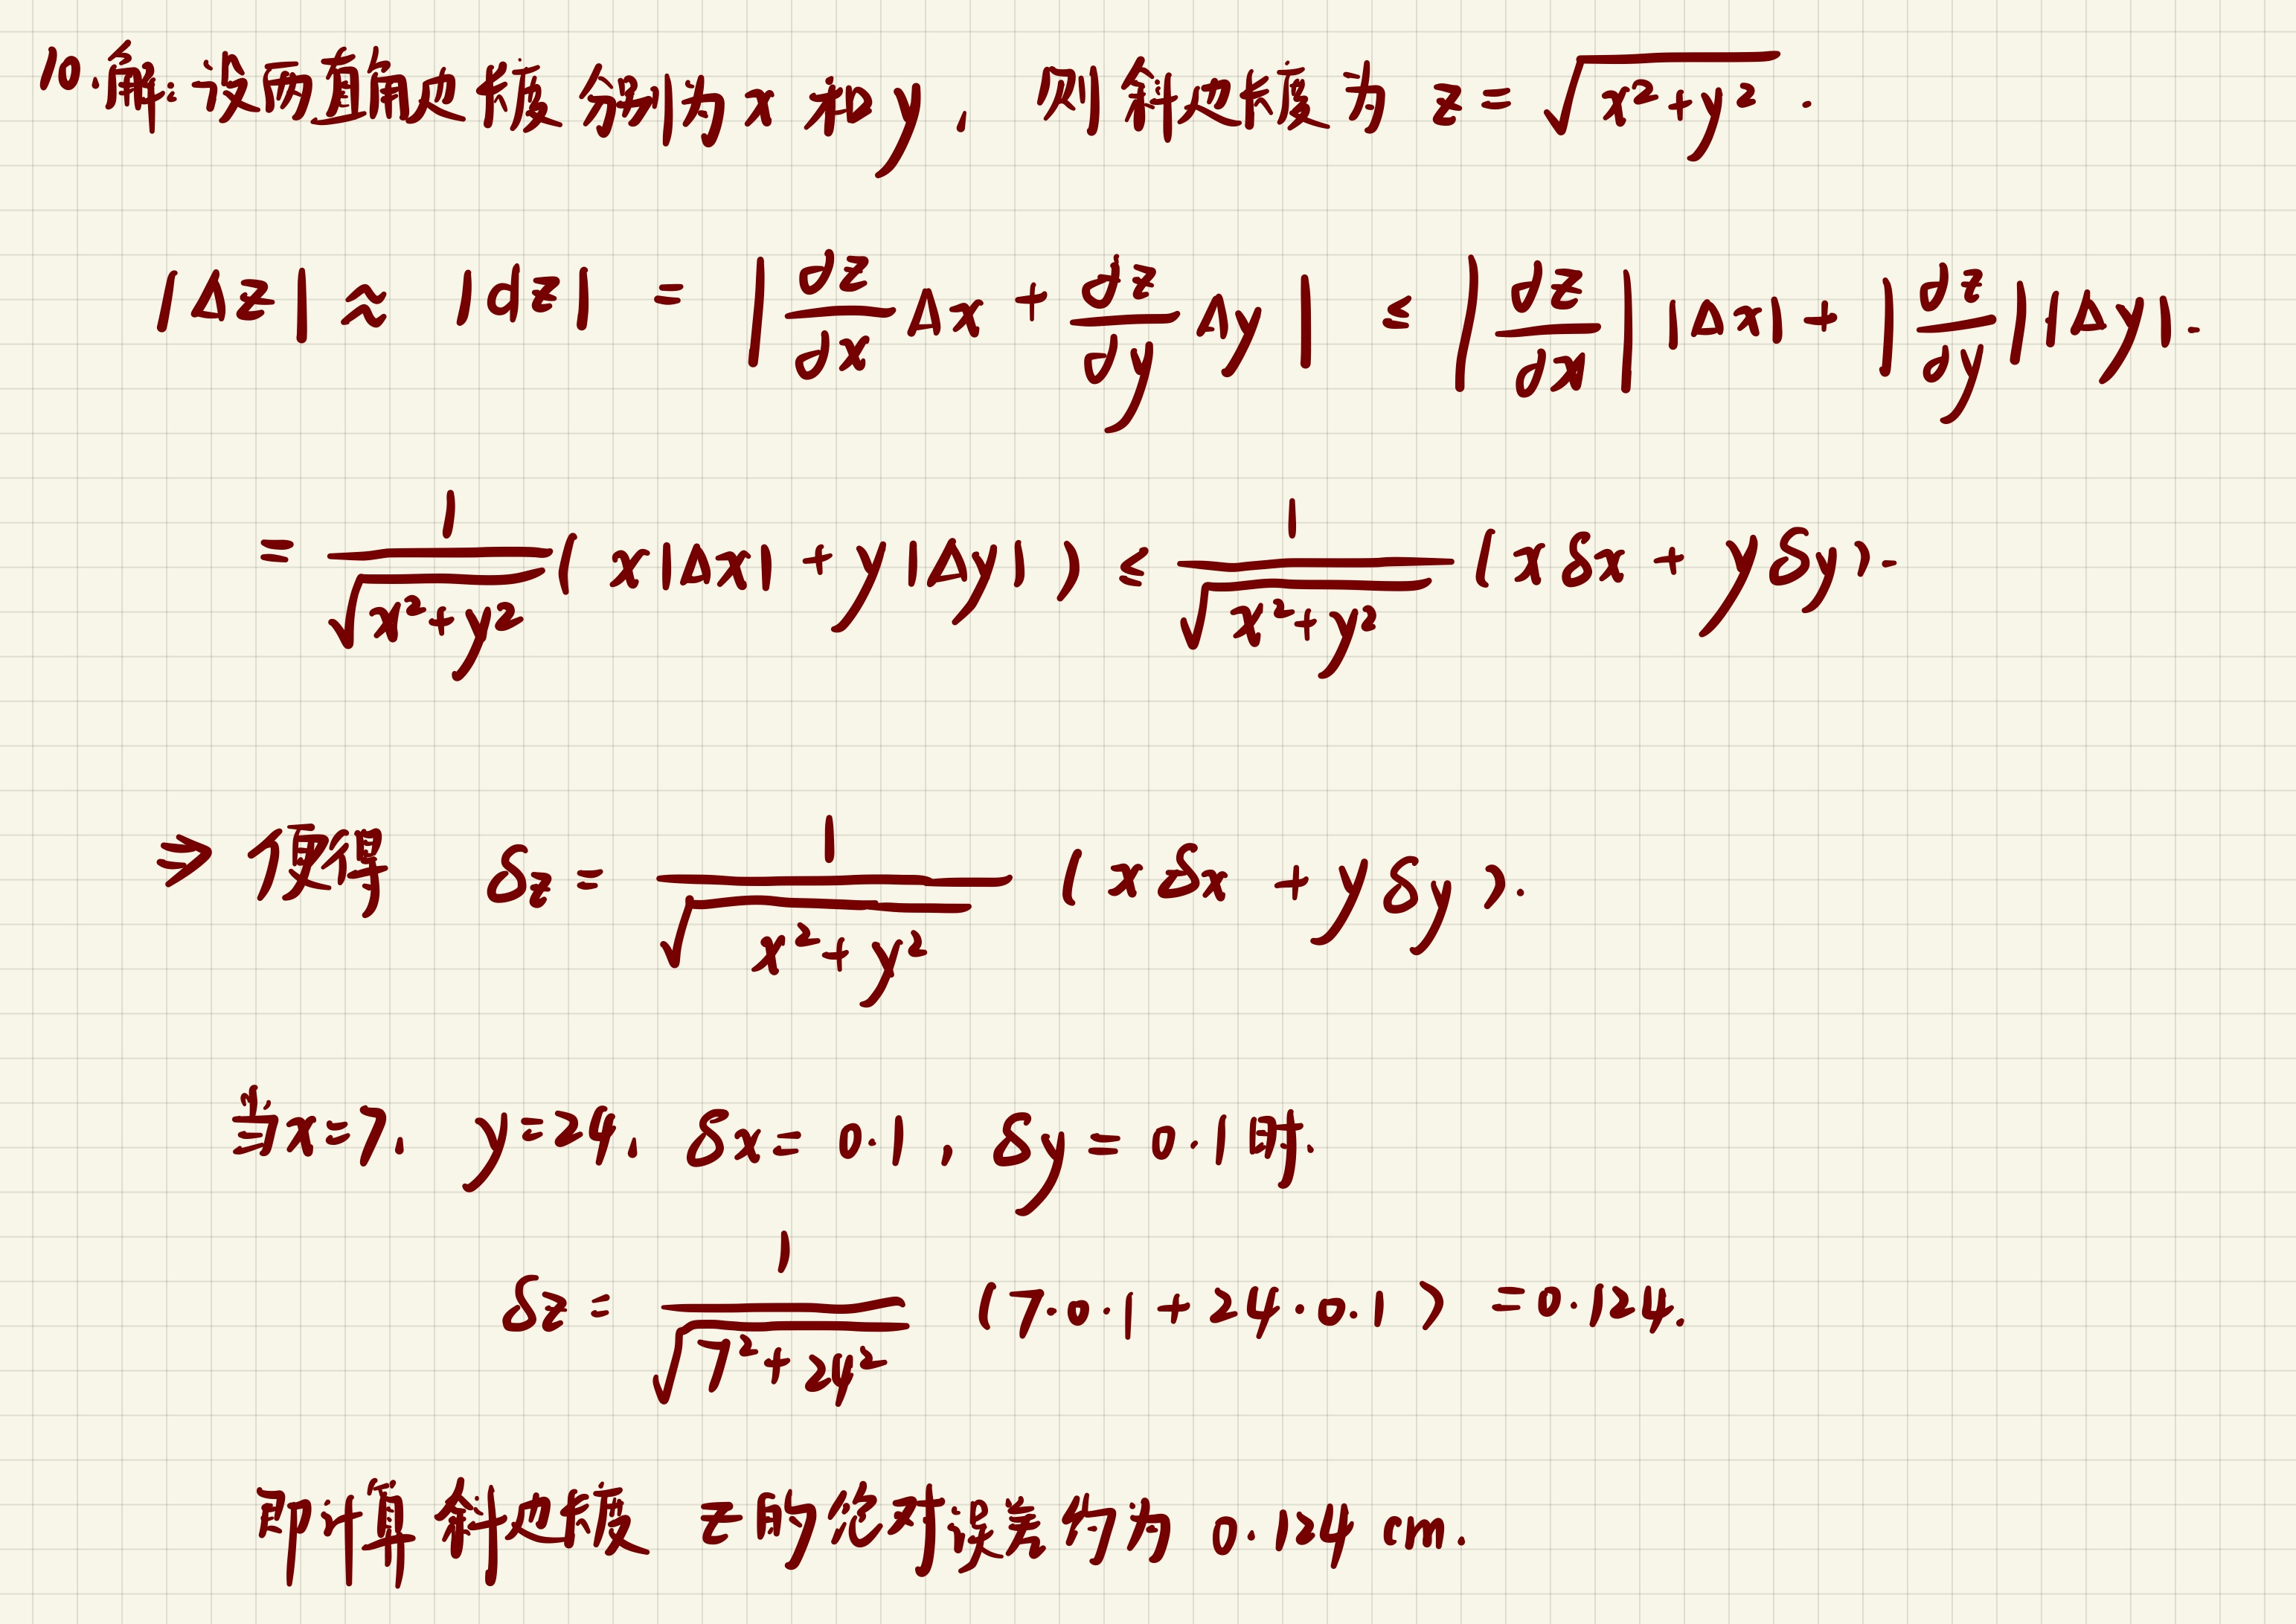 10.解:设两直角边长度分别为 x 和 y, 则斜边长度为 z = √(x²+y²).
|Δz| ≈ |dz| = |∂z/∂x Δx + ∂z/∂y Δy| ≤ |∂z/∂x| |Δx| + |∂z/∂y| |Δy|.
= 1/√(x²+y²) ( x|Δx| + y|Δy| ) ≤ 1/√(x²+y²) ( xδx + yδy ).
⇒ 便得 δz = 1/√(x²+y²) ( xδx + yδy ).
当x=7, y=24, δx=0.1, δy=0.1时.
δz = 1/√(7²+24²) (7·0.1+24·0.1) =0.124.
即计算斜边长度 z的绝对误差约为 0.124 cm.